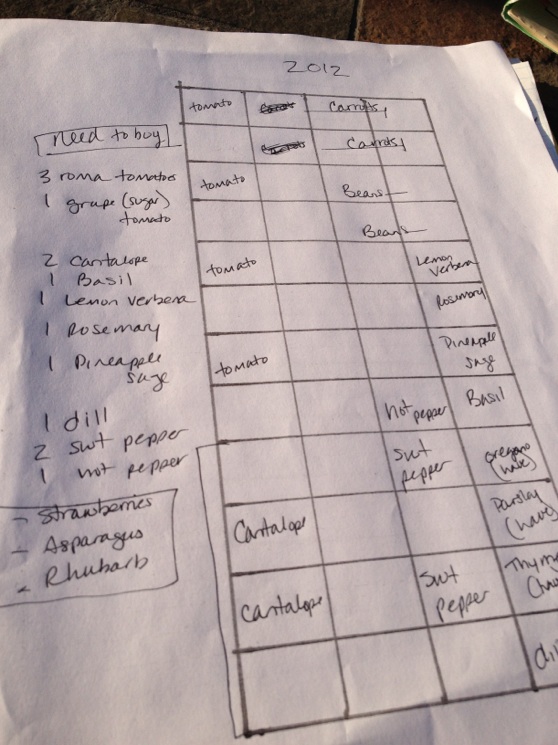 2012
need to buy
3 roma tomatoes
1 grape (sugar)
tomato
2 Cantalope
1 Basil
1 Lemon verbena
1 Rosemary
1 Pineapple
sage
1 dill
2 swt pepper
1 hot pepper
- Strawberries
- Asparagus
- Rhubarb
tomato Carrots
Carrots
tomato Beans
Beans
tomato Lemon
Verbena
Rosemary
tomato Pineapple
sage
hot pepper Basil
swt
pepper
oregano
(have)
Cantalope
Parsley
(have)
Cantalope
swt
pepper